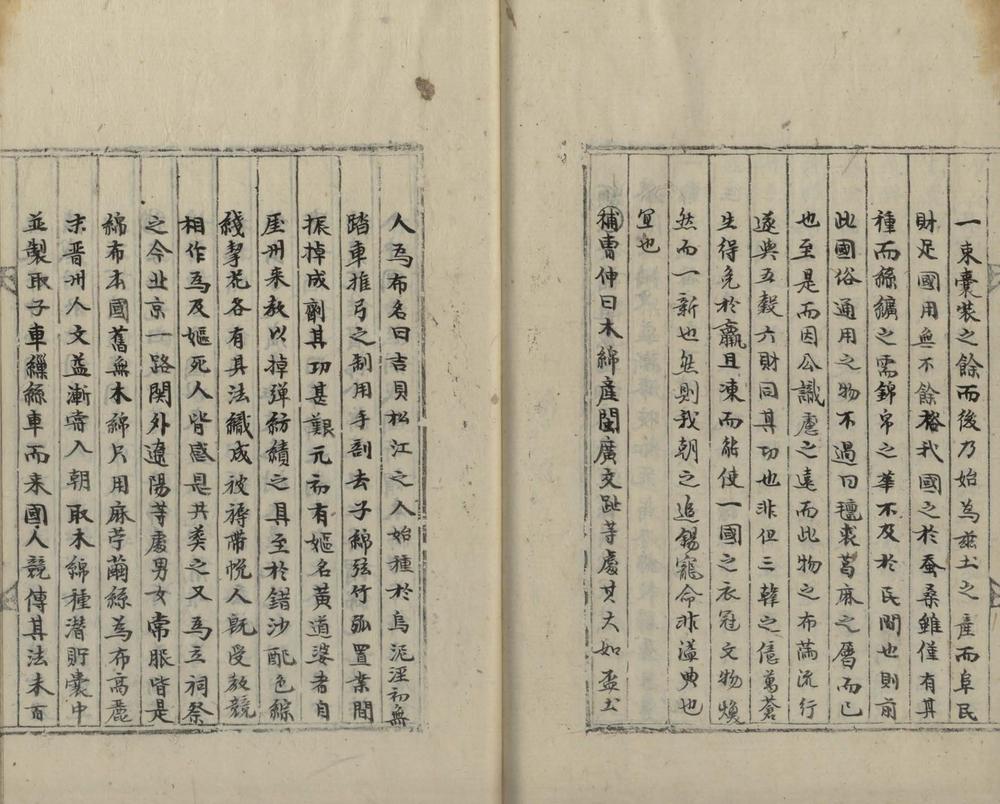 一束囊裝之餘而後乃始為玆土之産而阜民
財足國用無不餘裕我國之於蚕桑雖僅有其
種而絲纊之需錦帛之華不及於民間也則前
此國俗通用之物不過曰氊裘葛麻之屬而已
也至是而因公識慮之遠而此物之布滿流行
遂與五穀六財同其功也非但三韓之億萬蒼
生得免於羸且凍而能使一國之衣冠文物煥
然而一新也然則我朝之追錫寵命非溢典也
宜也
補曹伸曰木綿産閩廣交趾等處其大如盃土
人為布名曰吉貝松江之人始種於烏泥涇初無
踏車推弓之制用手剖去子綿弦竹弧置案間
振掉成劑其功甚艱元初有嫗名黃道婆者自
厓州来教以掉弾紡績之具至於錯沙配色綜
綫挈花各有其法織成被褥帶帨人旣受教競
相作為及嫗死人皆感恩共葬之又為立祠祭
之今北京一路関外遼陽等處男女常服皆是
綿布本國舊無木綿只用麻苧繭絲為布高麗
末晋州人文益漸嵜入朝取木綿種潜貯囊中
並製取子車繅絲車而来國人競傳其法未百